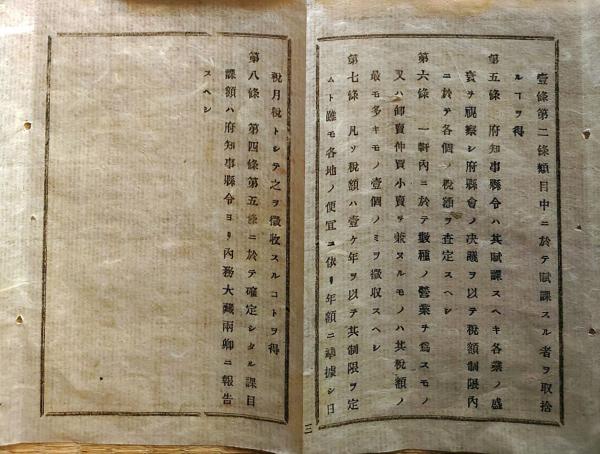 壹條第二條類目中ニ於テ賦課スル者ヲ取捨
ルヿヲ得
第五條　府知事縣令ハ其賦課スヘキ各業ノ盛
衰ヲ視察シ府縣會ノ決議ヲ以テ税額制限内
ニ於テ各個ノ税額ヲ査定スヘシ
第六條　一軒内ニ於テ數種ノ營業ヲ爲スモノ
又ハ卸賣仲買小賣ヲ兼ヌルモノハ其税額ノ
最モ多キモノ壹個ノミヲ徴収スヘシ
第七條　凡ソ税額ハ壹ケ年ヲ以テ其制限ヲ定
ムト雖モ各地ノ便宜ニ依リ年額ニ準據シ日
税月税トシテ之ヲ徴收スルコトヲ得
第八條　第四條第五條ニ於テ確定シタル課目
課額ハ府知事縣令ヨリ内務大藏兩卿ニ報告
スヘシ
三